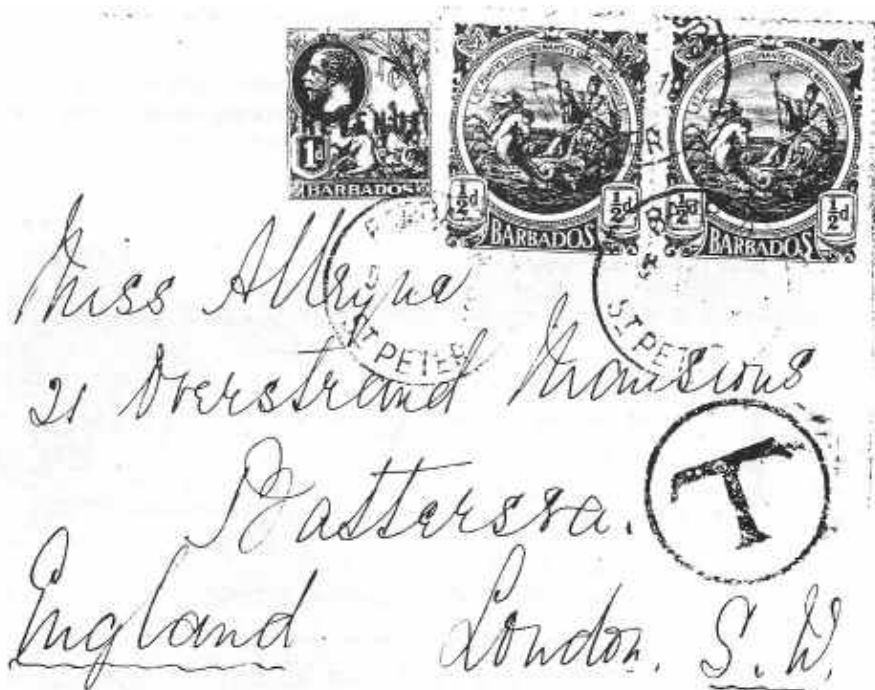 1d
BARBADOS
½d ½d
BARBADOS
½d ½d
BARBADOS
ST PETER
ST PETE
Miss Alleyne
21 Overstrand Mansions
Battersea.
T
England London. S.W.